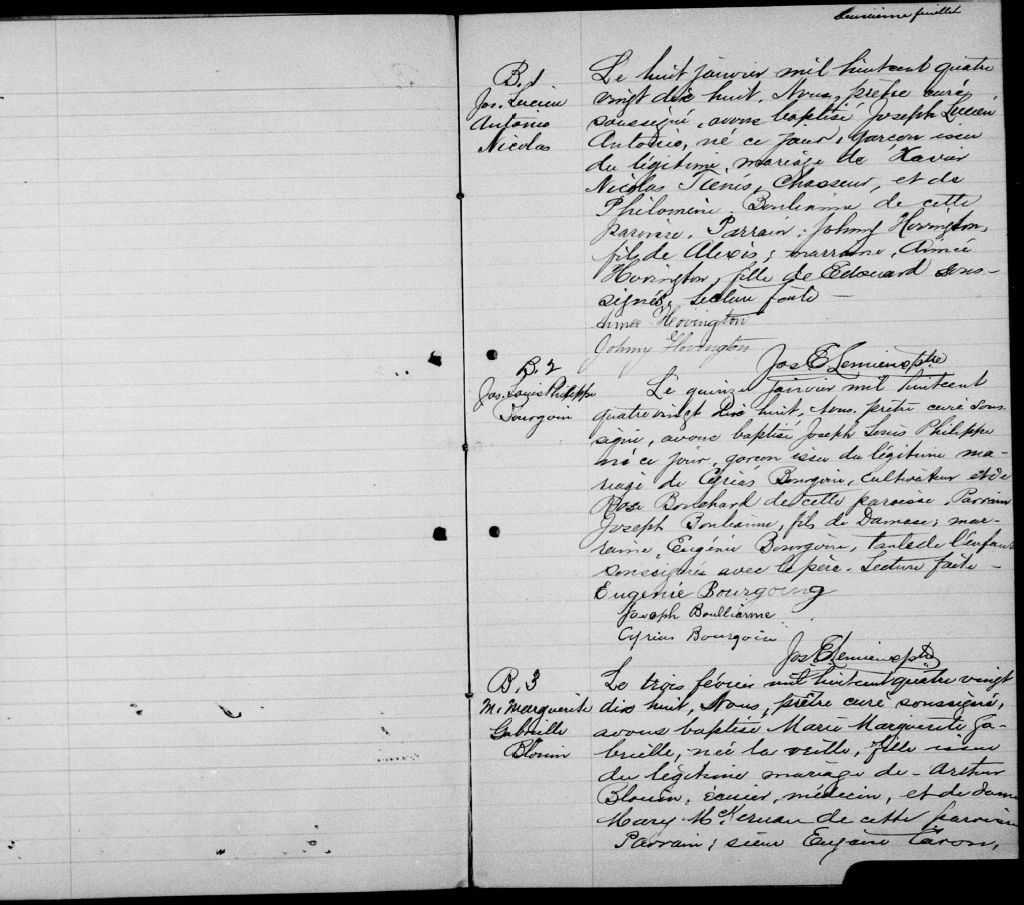 deuxième feuillet
B. 1
Jos. Lucien
Antonio
Nicolas
Le huit janvier mil huitcent quatre
vingt dix huit, Nous, prêtre curé
soussigné, avons baptisé Joseph Lucien
Antonio, né ce jour, garçon issu
du légitime mariage de Xavier
Nicolas Tiénis, Chasseur, et de
Philomène Boulianne de cette
paroisse. Parrain: Johnny Hovington,
fils de Alexis; marraine, Aimée
Hovington, fille de Edouard sous-
signés. Lecture faite —
Aimée Hovington
Johnny Hovington
Jos E Lemieux ptre
B. 2
Jos. Louis Philippe
Bourgoin
Le quinze janvier mil huitcent
quatrevingt dix huit, Nous, prêtre curé sous-
signé, avons baptisé Joseph Louis Philippe
né ce jour, garçon issu du légitime ma-
riage de Cyrias Bourgoin, cultivateur et de
Rose Bouchard de cette paroisse. Parrain
Joseph Boulianne, fils de Damase; mar-
raine, Eugénie Bourgoin, tante de l'enfant
soussignés avec le père. Lecture faite —
Eugenie Bourgoing
Joseph Boullianne
Cyrias Bourgoin
Jos E Lemieux ptre
B. 3
M. Marguerite
Gabrielle
Blouin
Le trois février mil huitcent quatre vingt
dix huit, Nous, prêtre curé soussigné,
avons baptisé Marie Marguerite Ga-
brielle, née la veille, fille issue
du légitime mariage de Arthur
Blouin, écuier, médecin, et de Dame
Mary McKernan de cette paroisse
Parrain; sieur Eugène Caron,